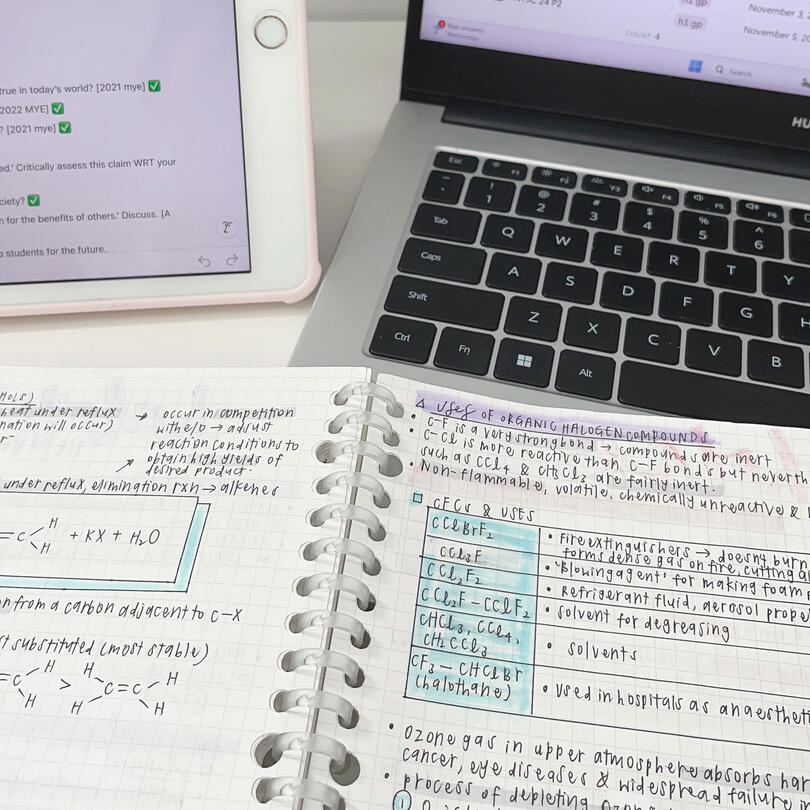 true in today's world? [2021 mye] ✅
2022 MYE] ✅
? [2021 mye] ✅
ed.' Critically assess this claim WRT your
ciety? ✅
n for the benefits of others.' Discuss. [A
students for the future.
24 P2
h1 gp
h1 gp
November 3, 2
November 5, 20
COUNT 4
Search
HU
Esc F1 F2 F3 F4 F5 F6
~ ` ! 1 @ 2 # 3 $ 4 % 5 ^ 6
Tab Q W E R T Y
Caps A S D F G H
Shift Z X C V B
Ctrl Fn Alt
HOLS)
heat under reflux → occur in competition
nation will occur) with e/o → adjust
r⁻ reaction conditions to
→ obtain high yields of
desired product.
under reflux, elimination rxn → alkenes
=C H H + KX + H₂O
n from a carbon adjacent to C-X
st substituted (most stable)
=C H H > H H C=C H H
USES OF ORGANIC HALOGEN COMPOUNDS
• C-F is a very strong bond → compounds are inert
• C-Cl is more reactive than C-F bonds but neverth
such as CCl₄ & CH₃CCl₃ are fairly inert.
• Non-flammable, volatile, chemically unreactive &
CFCs & USES
CClBrF₂ • Fire extinguishers → doesn't burn
forms dense gas on fire, cutting
CCl₃F • 'Blowing agent' for making foam
CCl₂F₂ • Refrigerant fluid, aerosol prope
CCl₂F – CClF₂ • solvent for degreasing
CHCl₃, CCl₄,
CH₃CCl₃ • solvents
CF₃ – CHClBr
(halothane) • used in hospitals as anaestheti
• Ozone gas in upper atmosphere absorbs har
cancer, eye diseases & widespread failure i
• process of depleting ozon
①